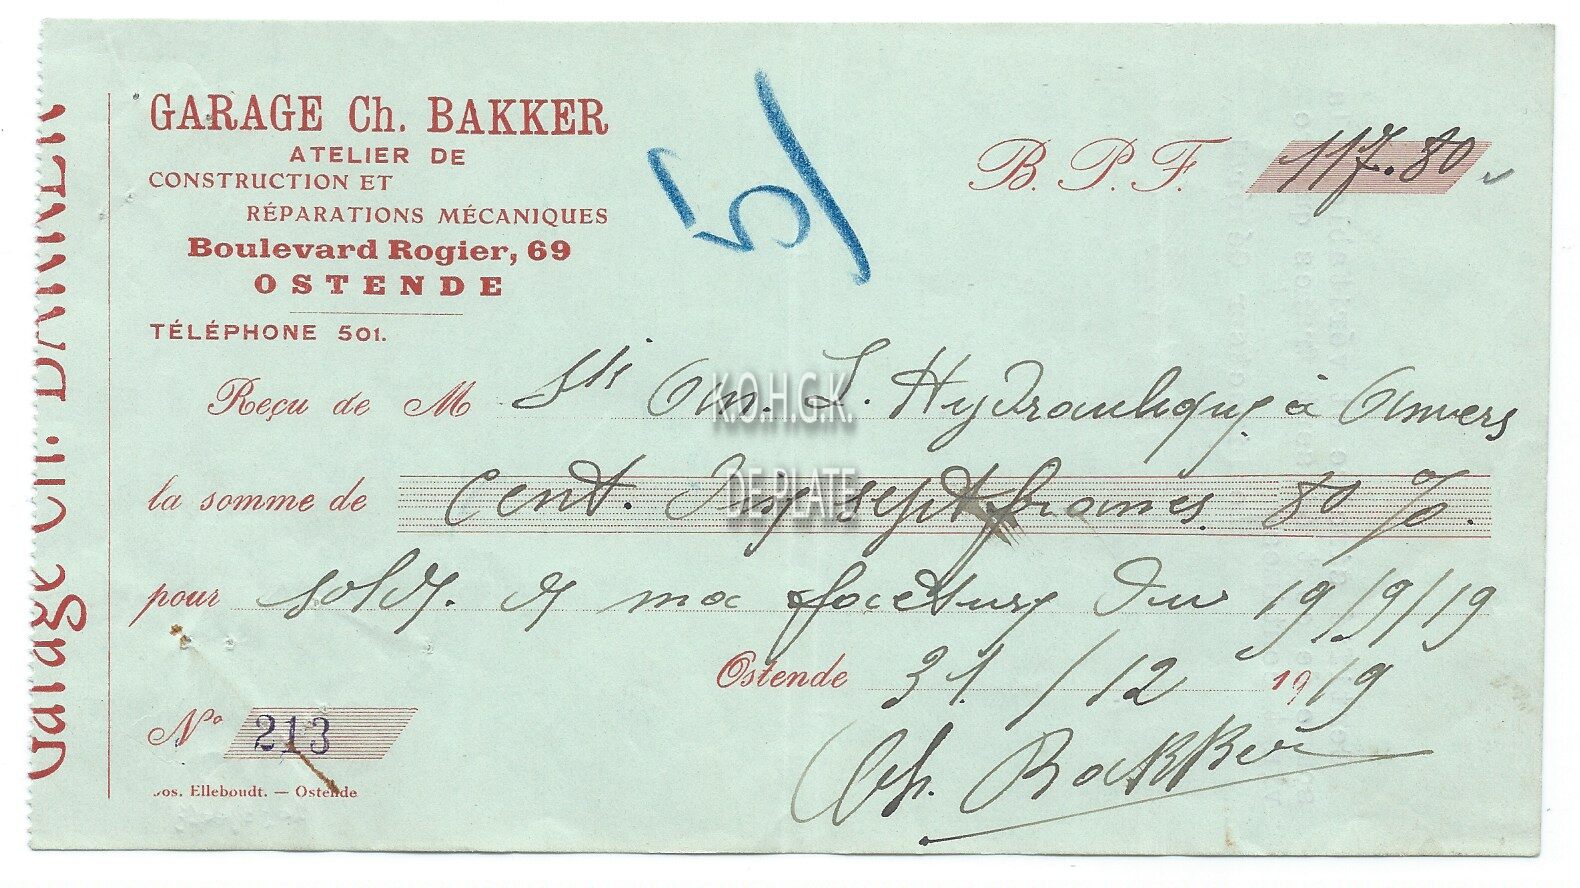 Garage Ch. BAKKER
GARAGE Ch. BAKKER
ATELIER DE
CONSTRUCTION ET
RÉPARATIONS MÉCANIQUES
Boulevard Rogier, 69
OSTENDE
TÉLÉPHONE 501.
5/
B. P. F. 117.80
Reçu de M Sté An. L. Hydraulique à Anvers
la somme de Cent. Dix sept francs. 80 %.
pour solde. de ma facture du 19/9/19
Ostende 31./12 19 19
Ch. Bakker
No 213
Jos. Elleboudt. — Ostende
K.O.H.G.K.
DE PLATE